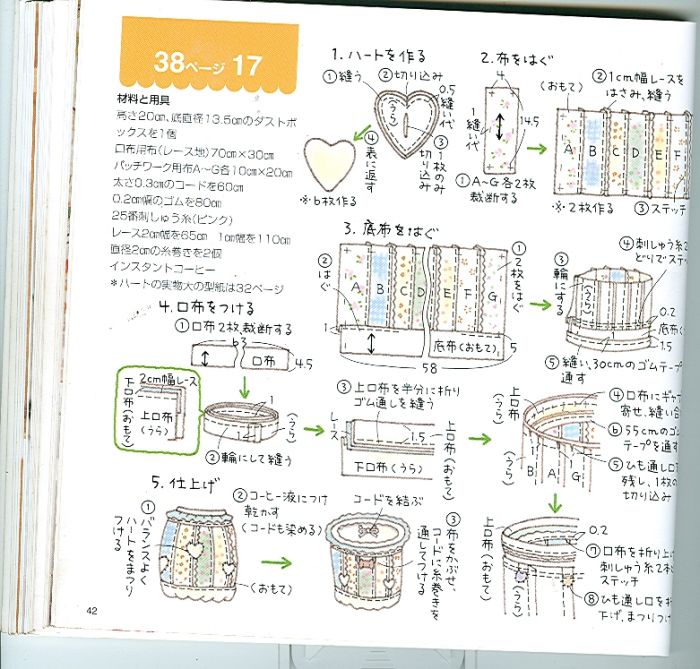 38ページ 17
材料と用具
高さ20㎝、底直径13.5㎝のダストボ
ックスを1個
口布用布(レース地)70㎝×30㎝
パッチワーク用布A〜G各10㎝×20㎝
太さ0.3㎝のコードを60㎝
0.2㎝幅のゴムを80㎝
25番刺しゅう糸(ピンク)
レース2㎝幅を65㎝ 1㎝幅を110㎝
直径2㎝の糸巻きを2個
インスタントコーヒー
*ハートの実物大の型紙は32ページ
1.ハートを作る
①縫う
②切り込み
0.5
縫い代
(うら)
④表に返す
③1枚のみ切り込み
※6枚作る
2.布をはぐ
4
1縫い代
14.5
①A〜G各2枚
裁断する
(おもて)
②1cm幅レースを
はさみ、縫う
A B C D E F
※2枚作る
③ステッチ
3.底布をはぐ
②はぐ
①2枚をはぐ
A B C D E F G
1
底布(おもて)
5
58
③輪にする
④刺しゅう糸2
どりでステ
(うら)
0.2
1.5
⑤縫い、30cmのゴムテープ
通す
4.口布をつける
①口布2枚裁断する
63
口布
4.5
2cm幅レース
下口布(おもて)
上口布
(うら)
1
1
(うら)
②輪にして縫う
③上口布を半分に折り
ゴム通しを縫う
レース
1.5
下口布(うら)
上口布(おもて)
上口布
(うら)
④口布にギャ
寄せ、縫い合
⑥55cmのゴム
テープを通す
⑤ひも通し口
残し、1枚の
切り込み
(うら)
B A G
上口布
(おもて)
0.2
⑦口布を折り上
刺しゅう糸2本
ステッチ
(うら)
⑧ひも通し口を折
下げ、まつりつけ
5.仕上げ
①バランスよく
ハートをまつり
つける
②コーヒー液につけ
乾かす
(コードも染める)
(おもて)
コードを結ぶ
③布をかぶせ、
コードに糸巻きを
通してつける
42